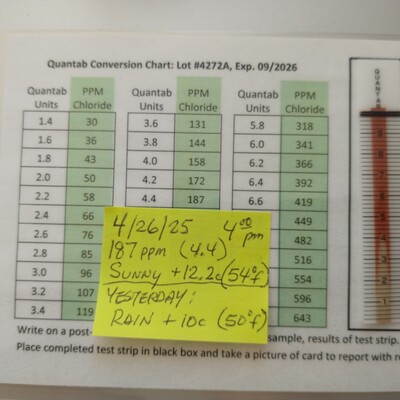 Quantab Conversion Chart: Lot #4272A, Exp. 09/2026
Quantab Units PPM Chloride Quantab Units PPM Chloride Quantab Units PPM Chloride
1.4 30 3.6 131 5.8 318
1.6 36 3.8 144 6.0 341
1.8 43 4.0 158 6.2 366
2.0 50 4.2 172 6.4 392
2.2 58 4.4 187 6.6 419
2.4 66 449
2.6 76 482
2.8 85 516
3.0 96 554
3.2 107 596
3.4 119 643
4/26/25 4:00 pm
187 ppm (4.4)
SUNNY +12.2c (54°f)
YESTERDAY:
RAIN +10c (50°f)
Write on a post- sample, results of test strip.
Place completed test strip in black box and take a picture of card to report with
QUANTAB